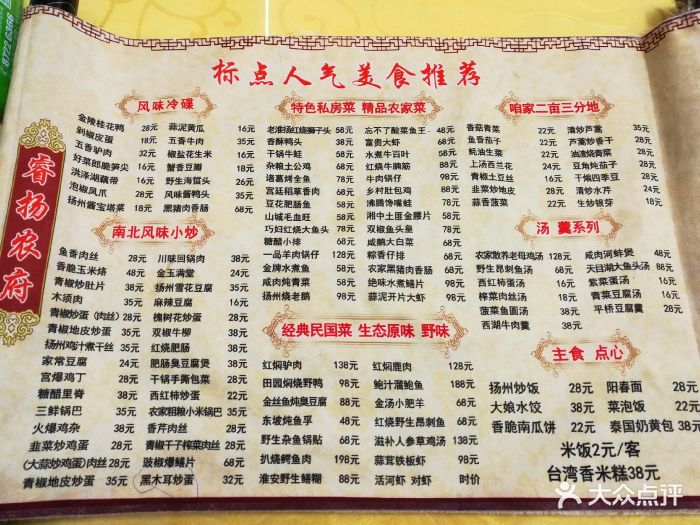 标点人气美食推荐
睿扬农府
风味冷碟
金陵桂花鸭 28元 蒜泥黄瓜 16元
剁椒皮蛋 28元 五香牛肉 35元
五香驴肉 32元 椒盐花生米 16元
好菜郎脆笋尖 16元 蟹香豆瓣 16元
洪泽湖藕带 16元 野生海蜇头 38元
泡椒凤爪 28元 风味酱鸭头
扬州酱宝塔菜 18元 黑猪肉香肠 68元
南北风味小炒
鱼香肉丝 28元 川味回锅肉 38元
香脆玉米烙 48元 金玉满堂 24元
青椒炒肚片 38元 扬州雪花豆腐 38元
木须肉 35元 麻辣豆腐 16元
青椒炒蛋（肉丝）28元 槐树花炒蛋 38元
青椒地皮炒蛋 35元 双椒牛柳 38元
扬州鸡汁煮干丝 35元 红烧肥肠 38元
家常豆腐 24元 肥肠臭豆腐煲 38元
宫爆鸡丁 28元 干锅手撕包菜 28元
糖醋里脊 38元 西红柿炒蛋 22元
三鲜锅巴 35元 农家粗粮小米锅巴 35元
火爆鸡杂 38元 香芹肉丝 28元
韭菜炒鸡蛋 28元 青椒干子榨菜肉丝 28元
（大蒜炒鸡蛋）肉丝 28元 豉椒爆鳝片 68元
青椒地皮炒蛋 35元 黑木耳炒蛋 32元
特色私房菜 精品农家菜
老淮扬红烧狮子头 58元 忘不了酸菜鱼王 48元
香酥鸭头 38元 富贵大虾 68元
干锅牛蛙 58元 水煮牛百叶 58元
杂粮土公鸡 68元 红烧牛腩筋 88元
洛葛烤全鱼 78元 牛肉锅仔 98元
宫廷稻草香肉 68元 乡村肚包鸡 88元
豆花肥肠鱼 58元 沸腾馋嘴蛙 68元
山城毛血旺 58元 湘中土匪金腰片 58元
巧妇红烧大鱼头 78元 双椒鱼头皇 78元
糖醋小排 68元 咸鹅大白菜 38元
一品羊肉锅仔 128元 粽香仔排 68元
金牌水煮鱼 58元 农家黑猪肉香肠 68元
咸肉炖青菜 38元 绝味水煮鳝片 98元
扬州烧老鹅 98元 蒜泥开片大虾 98元
经典民国菜 生态原味 野味
红焖驴肉 138元 红焖鹿肉 128元
田园焖烧野鸭 98元 鲍汁溜鲍鱼 98元
金丝鱼炖臭豆腐 68元 金汤小肥羊 68元
东坡炖鱼孚 48元 红烧野生昂刺鱼 68元
野生杂鱼锅贴 68元 滋补人参草鸡汤 138元
扒烧鳄鱼肉 198元 蒜茸铁板虾 98元
淮安野生鳝糊 88元 活河虾 对虾 时价
咱家二亩三分地
香菇青菜 22元 清炒芦蒿 35元
鱼香茄子 22元 芦蒿炒香干 28元
蚝油生菜 22元 油渣烧青菜 28元
上汤西兰花 24元 豆角炖茄子 28元
青椒土豆丝 16元 干煸四季豆 28元
韭菜炒地皮 28元 清炒水芹 24元
蒜香菠菜 22元 生炒银芽 18元
汤 羹系列
农家散养老母鸡汤 128元 咸肉河蚌煲 48元
野生昂刺鱼汤 68元 天目湖大鱼头汤 88元
西红柿蛋汤 16元 紫菜蛋汤 16元
榨菜肉丝汤 18元 青菜豆腐汤 16元
菠菜鱼圆汤 38元 平桥豆腐羹 28元
西湖牛肉羹 35元
主食 点心
扬州炒饭 28元 阳春面 28元
大娘水饺 38元 菜泡饭 22元
香脆南瓜饼 22元 泰国奶黄包 38元
米饭2元/客
台湾香米糕38元
大众点评